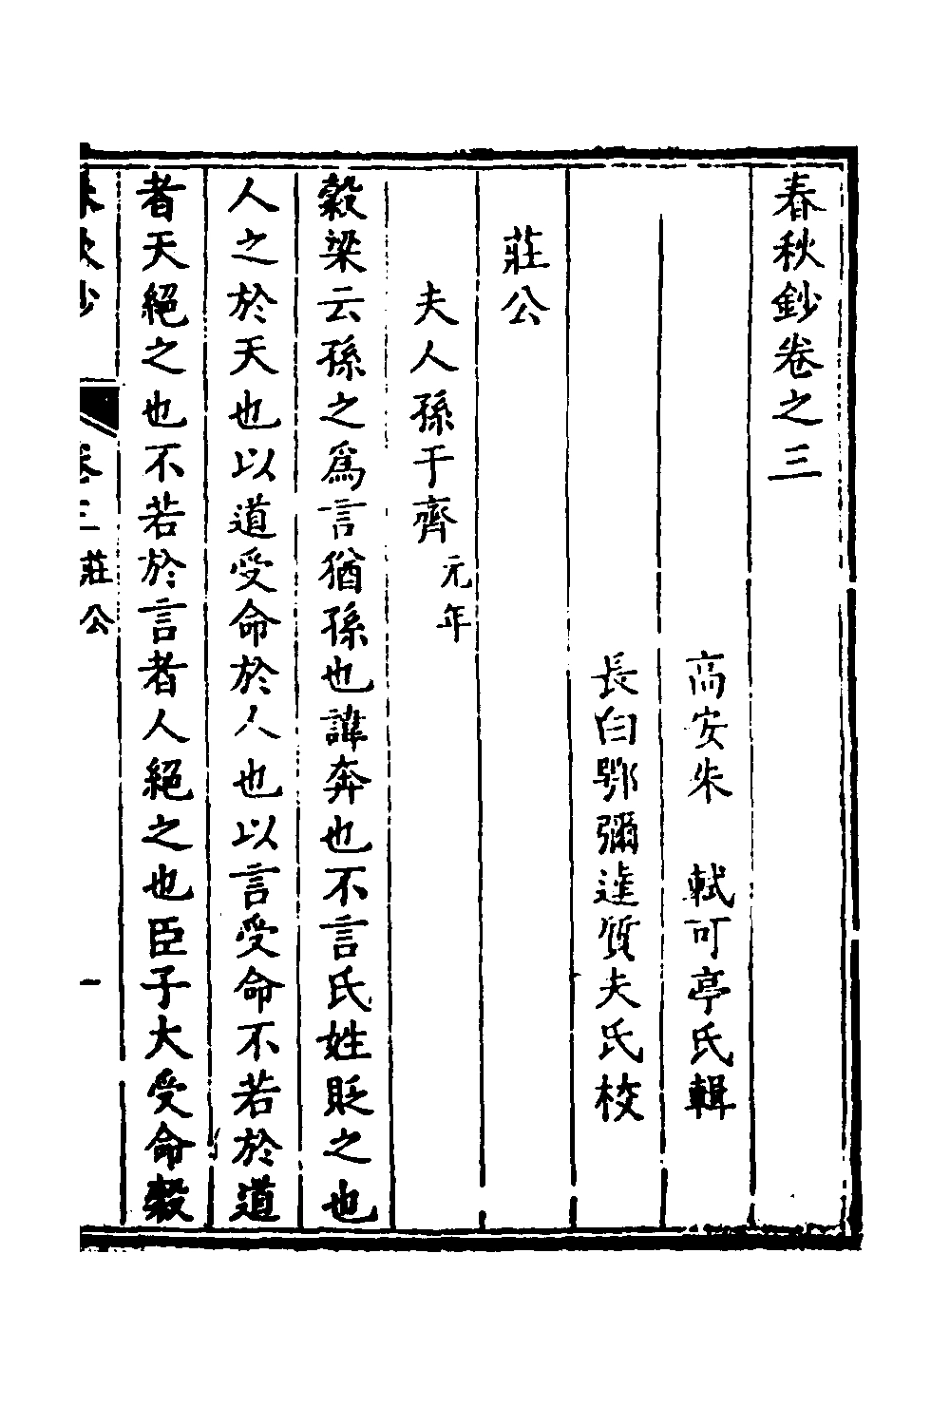 春秋鈔卷之三
高安朱　軾可亭氏輯
長白鄂彌達質夫氏校
莊公
夫人孫于齊元年
穀梁云孫之爲言猶孫也諱奔也不言氏姓貶之也
人之於天也以道受命於人也以言受命不若於道
者天絕之也不若於言者人絕之也臣子大受命穀
卷三 莊公
一